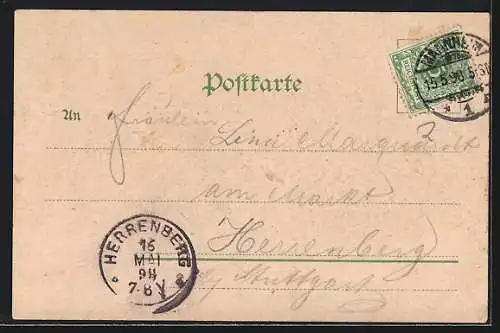 MANNHEIM
15.5.98
1
Postkarte
An Fräulein
Lina Marquardt
am Markt
Herrenberg
by Stuttgart
HERRENBERG
15
MAI
98
7-8 V